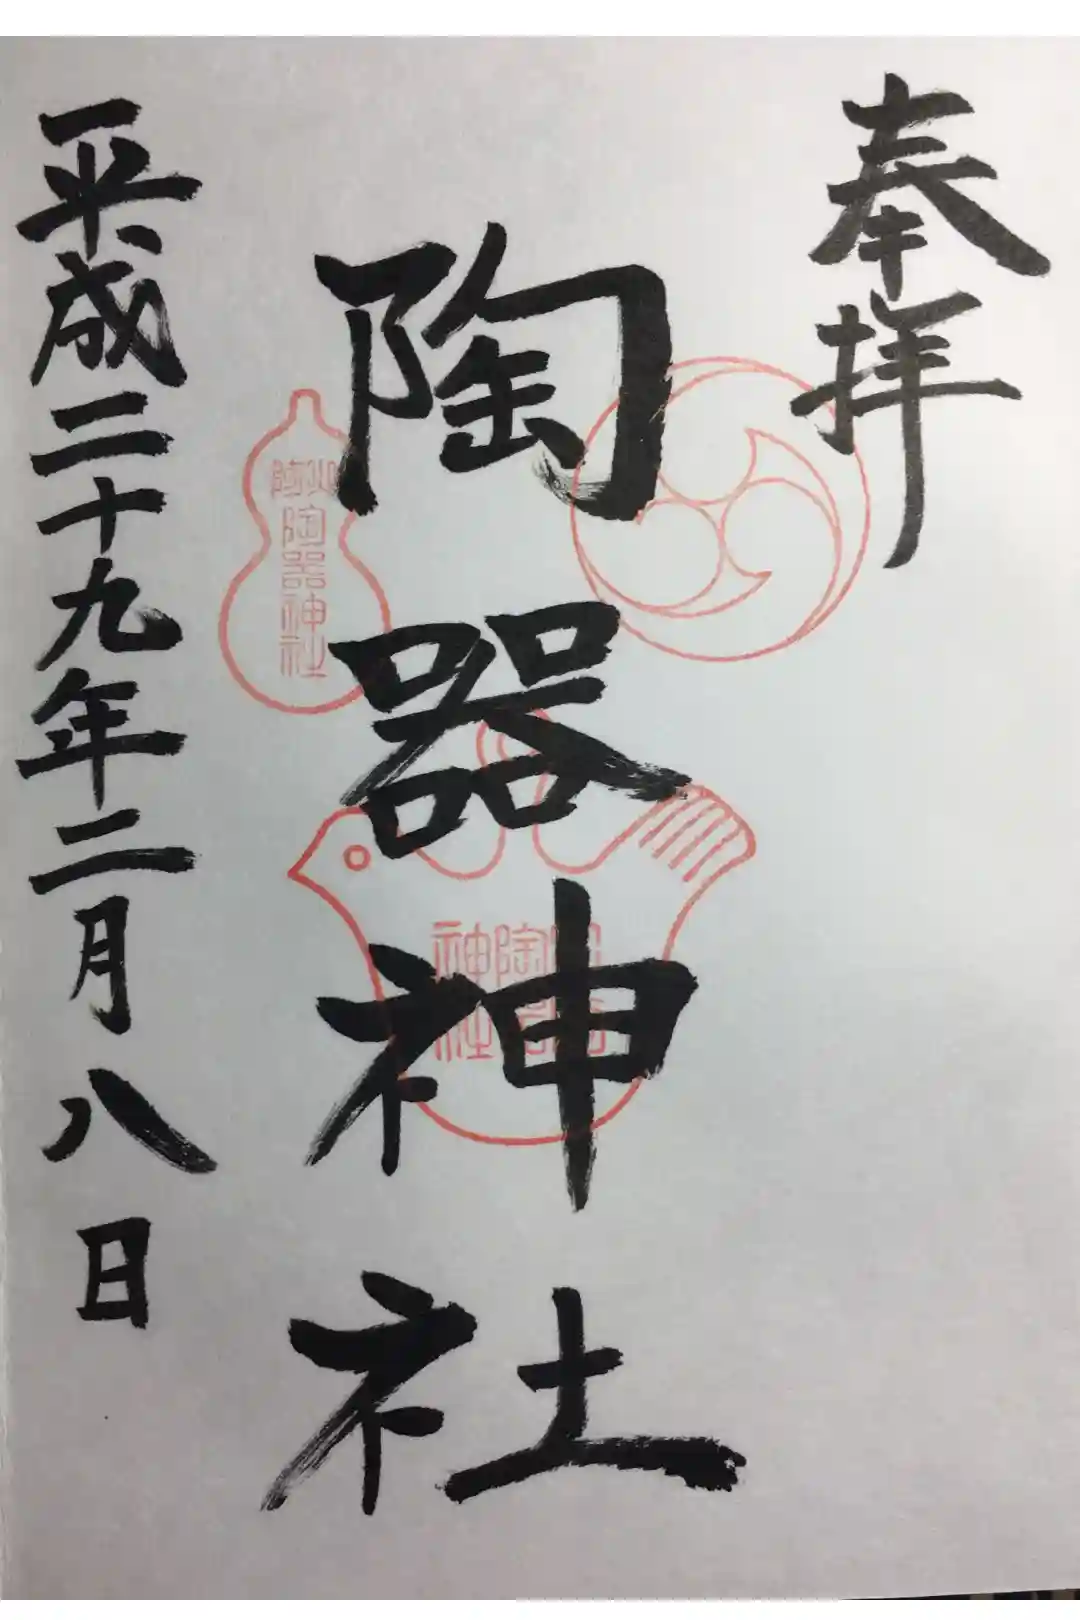 奉拝
陶器神社
平成二十九年二月八日
陶器神社